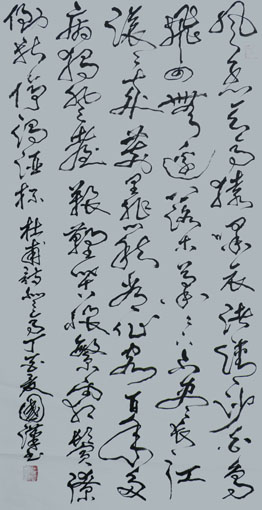 風急天高猿嘯哀渚清沙白鳥
飛回無邊落木蕭蕭下不盡長江
滾滾來萬里悲秋常作客百年多
病獨登臺艱難苦恨繁霜鬢潦
倒新停濁酒杯 杜甫詩登高 丁夏國漢書